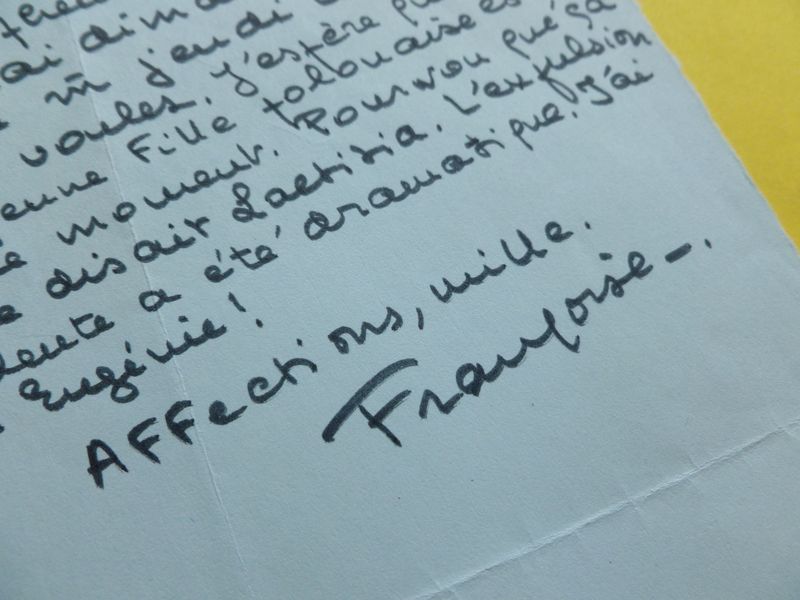 ai dima
jeudi
voules. J'espère que
enne fille toulousaise
moment. Pourvou que ça
disait Laetitia. L'expulsion
lente a été dramatique. J'ai
Eugénie!
AFFections, mille.
Françoise -.